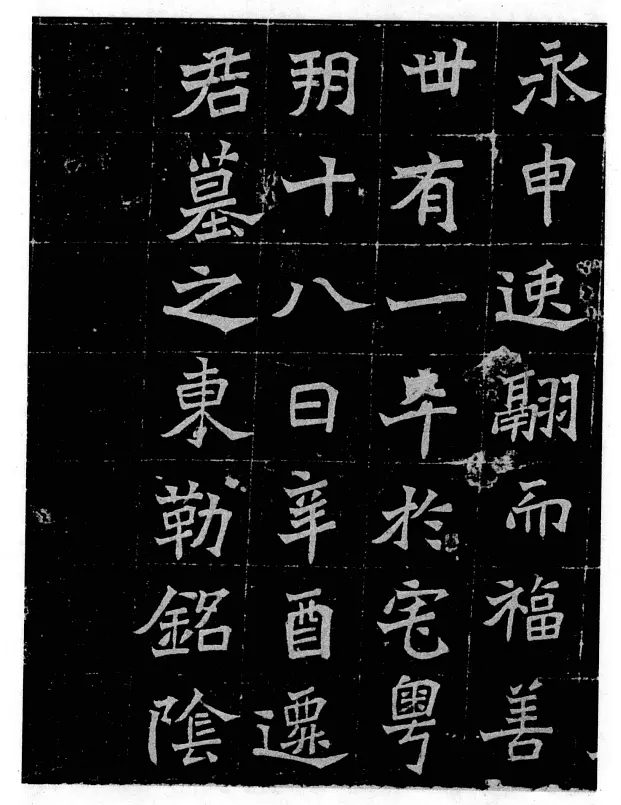 永申速翮而福善
丗有一卒於宅粵
朔十八日辛酉遷
君墓之東勒銘陰